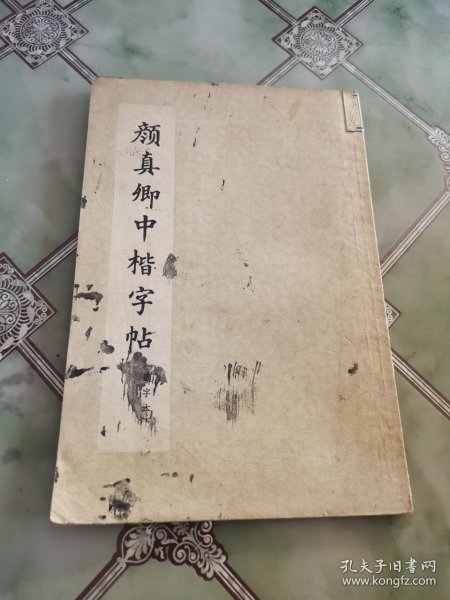 颜真卿中楷字帖
孔夫子旧书网
www.kongfz.com